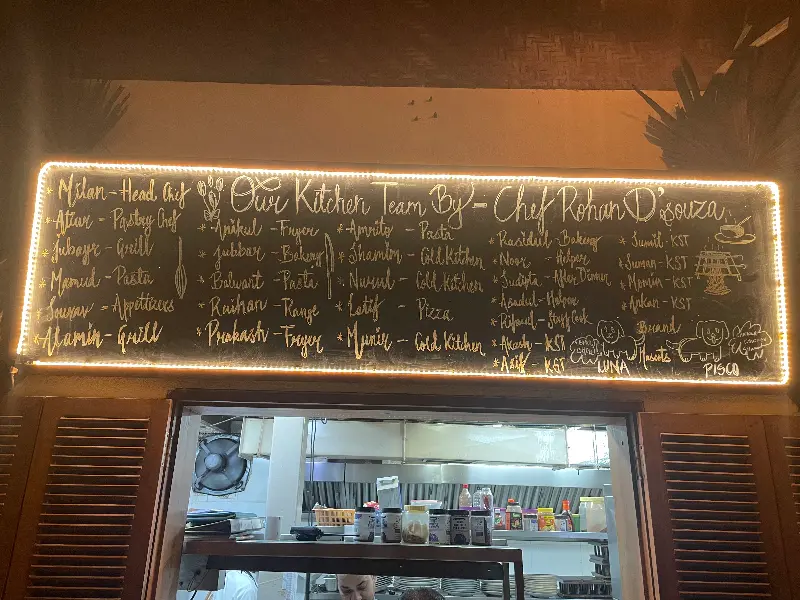 Our Kitchen Team By - Chef Rohan D'souza
* Milan - Head Chef
* Afzar - Pastry Chef
* Jubayr - Grill
* Mamud - Pasta
* Sourav - Appetizers
* Alamin - Grill
* Nakul - Fryer
* Jubbar - Bakery
* Balwart - Pasta
* Raihan - Range
* Prakash - Fryer
* Amrito - Pasta
* Shamim - Cold Kitchen
* Nurul - Cold Kitchen
* Latif - Pizza
* Munir - Cold Kitchen
* Rasidul - Bakery
* Noor - Helper
* Sudipta - After Dinner
* Asadul - Helper
* Ripaul - Staff Cook
* Akash - KST
* Asif - KST
* Sumit - KST
* Suman - KST
* Momin - KST
* Ankan - KST
Brand
Mascots
LUNA
PISCO